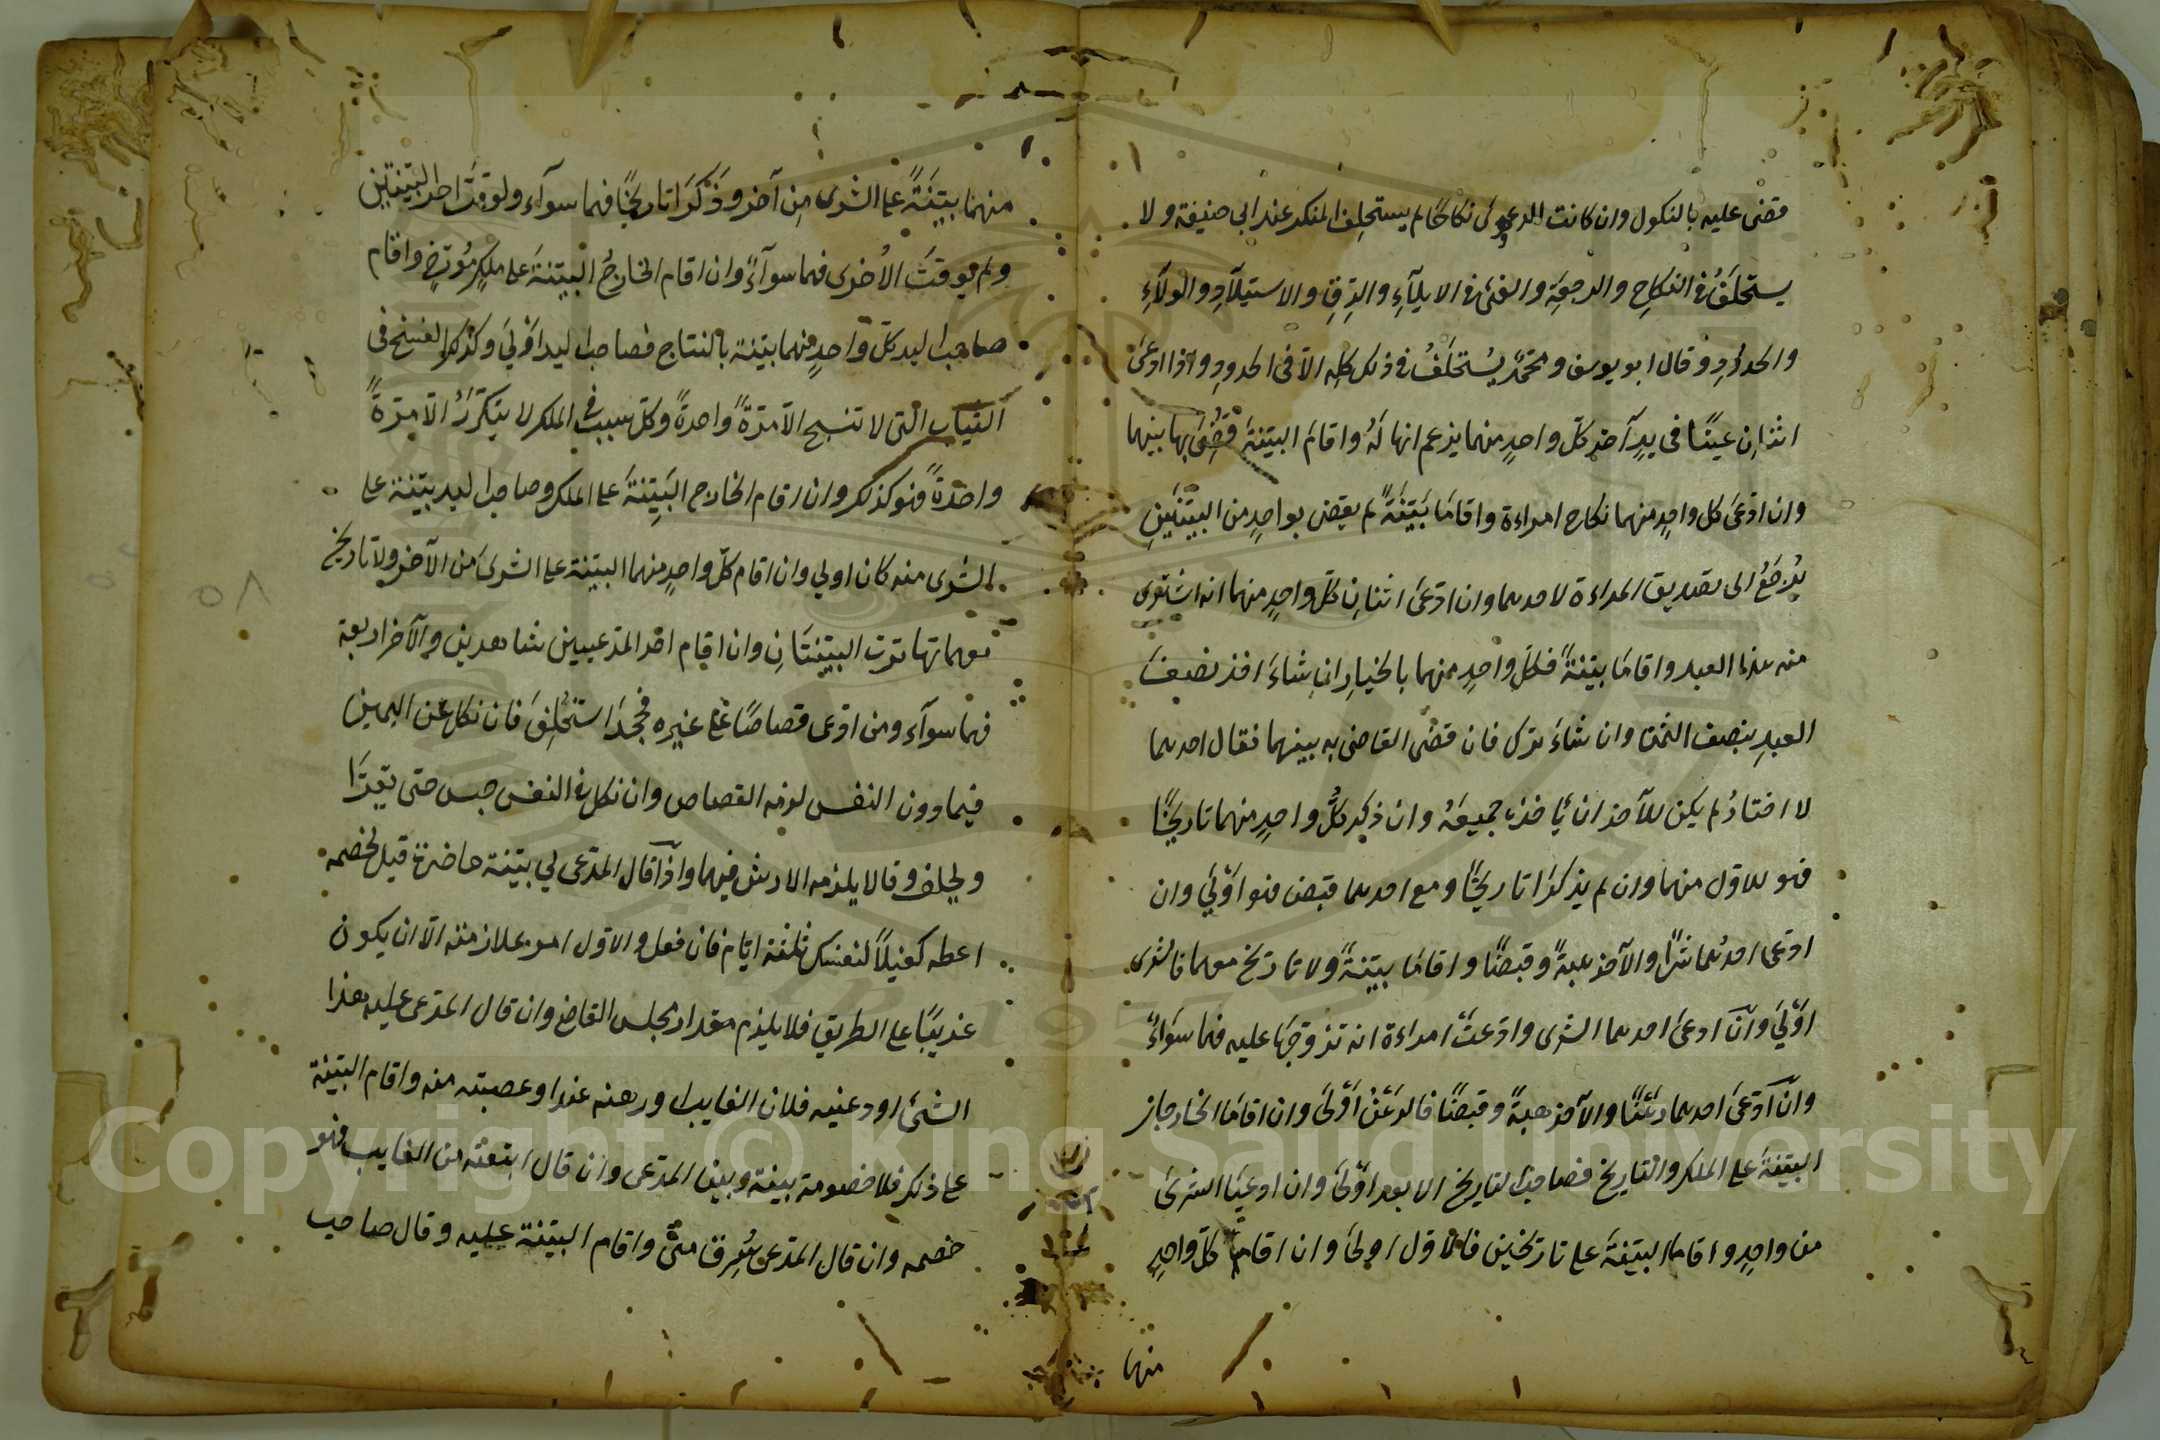 قضى عليه بالنكول وان كانت الدعوى نكاحًا لم يستحلِف المنكر عند ابي حنيفة ولا
يستحلَفُ في النكاحِ والرجعَةِ والفئ في الايلآءِ والرِّقِ والاستيلآدِ والولآءِ
والحدودِ وقال ابو يوسف ومحمّد يُستحلَفُ في ذلك كلِه الآ في الحدودِ واذا ادعى
اثنانِ عينًا في يدِ آخر كلّ واحدٍ منهما يزعم انها لَهُ واقامَ البيّنةَ قُضِىَ بها بينهما
وان ادّعىَ كل واحدٍ منهما نكاح امراءة واقامَا بَيّنَةً لم يقض بواحدٍ من البيّنتَينِ
يُرجَعُ الى تصديق المراءة لاحدهما وان ادّعىَ اثنانِ كلّ واحدٍ منهما انه اشترى
منه هذا العبد واقامَا بيّنةً فكلّ واحدٍ منهما بالخيارِ ان شاءَ اخذ نصفَ
العبدِ بنصف الثمن وان شاءَ ترك فان قضى القاضى به بينهما فقال احدهما
لا اختارُ لم يكن للآخر ان يأخذ جميعَهُ وان ذكر كلُّ واحدٍ منهما تاريخًا
فهو للاوّل منهما وان لم يذكرَا تاريخًا ومع احدهما قبض فهو اوّلىَ وان
ادّعى احدُهما شرًا والآخر هبةً وقبضًا واقامَا بيّنةً ولا تاريخ معهما فالشرى
اوّلىَ وانْ ادعىَ احدهما الشرى وادّعتْ امراءة انه تزوّجَها عليه فهما سوَاءً
وانْ ادّعىَ احدهما رهَنًا والآخر هبةً وقبضًا فالرهَنُ اوّلىَ وان اقامَا الخارجان
البيّنةَ على الملك والتاريخ فصاحبُ التاريخ الابعد اوّلىَ وان ادعيَا الشرىَ
من واحدٍ واقاما البيّنةَ على تاريخين فالاول اولىَ وان اقام كلّ واحدٍ
منهما
منهما بيّنَةً على الشرى مِن آخر وذَكَرَا تاريخًا فهما سوآء ولو وقّتَ احد البيّنتين
ولم يوقّتَ الاُخرى فهما سوآءً وان اقام الخارجُ البيّنةَ على ملكٍ مُؤرّخٍ واقام
صاحب اليد كلّ واحدٍ منهما بيّنة بالنتاج فصاحب اليد اوّلىَ وكذلك النسج في
الثياب التى لا تنسج الآ مرّةً واحدةً وكلّ سبب في الملك لا يتكرّرُ الآ مرّةً
واحدةً فهو كذلك وان اقام الخارج البَيِّنةَ على الملك وصاحب اليد بيّنة على
الشرى منه كان اولي وان اقام كلّ واحدٍ منهما البيّنة على الشرىَ من الآخر ولا تاريخ
معهما تهاترت البيّنتَانِ وان اقام احد المدّعيين شاهدين والآخر اربعة
فهما سوآء ومن ادّعى قصاصًا على غيره فجحدَ استُحلِفَ فان نكل عن اليمين
فيما دون النفس لزمه القصاص وان نكل في النفس حبس حتى يقرّا
ويحلف وقالا يلزمه الارش فيهما واذا قال المدّعى لي بيّنة حاضرة قيل لخصمه
اعطه كفيلاً لنفسك ثلثة ايّام فان فعل والاوّل امر بملازمته الاّ ان يكون
غريبًا على الطريق فلا يلزم مقدار مجلس القاضي وان قال المدّعى عليه هذا
الشئ اودعنيه فلان الغايب او رهنه عندا وغصبته منه واقام البيّنة
على ذلك فلا خصومة بينة وبين المدّعى وان قال ابتعتُه من الغايب فهو
خصمه وان قال المدّعى سُرق منىّ واقام البيّنة عليه وقال صاحب
٥٨
Copyright © King Saud University